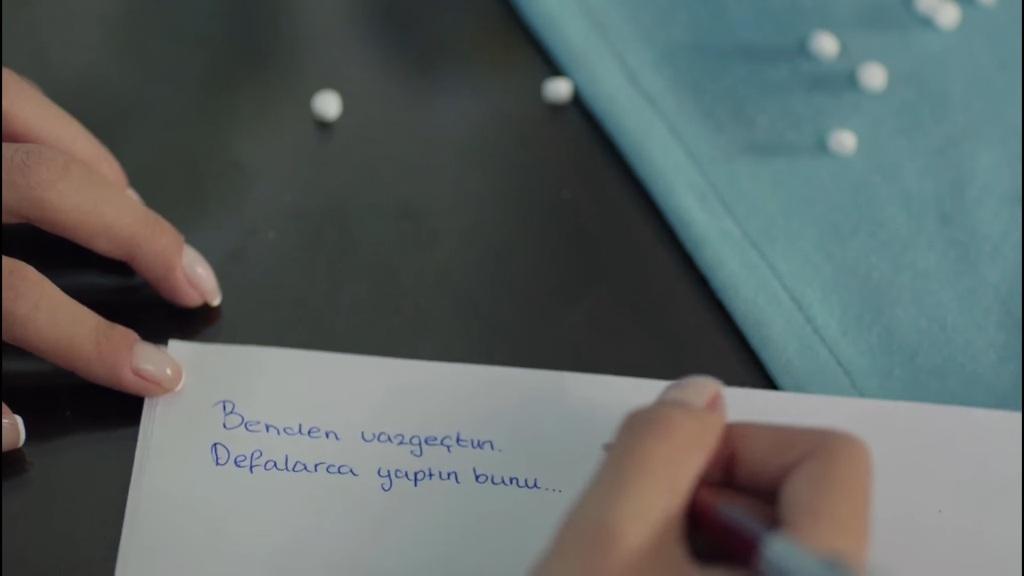 Benden vazgeçtin.
Defalarca yaptın bunu...